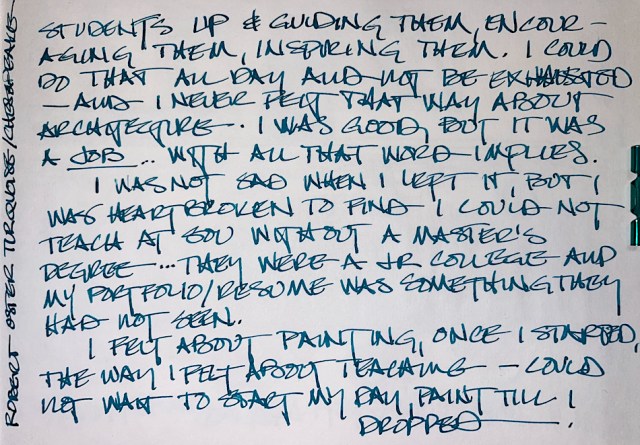 STUDENTS UP & GUIDING THEM, ENCOUR-
AGING THEM, INSPIRING THEM. I COULD
DO THAT ALL DAY AND NOT BE EXHAUSTED
— AND I NEVER FELT THAT WAY ABOUT
ARCHITECTURE. I WAS GOOD, BUT IT WAS
A JOB... WITH ALL THAT WORD IMPLIES.
I WAS NOT SAD WHEN I LEFT IT, BUT I
WAS HEARTBROKEN TO FIND I COULD NOT
TEACH AT SOU WITHOUT A MASTER'S
DEGREE... THEY WERE A JR COLLEGE AND
MY PORTFOLIO/RESUME WAS SOMETHING THEY
HAD NOT SEEN.
I FELT ABOUT PAINTING, ONCE I STARTED,
THE WAY I FELT ABOUT TEACHING — COULD
NOT WAIT TO START MY DAY, PAINT TILL I
DROPPED.
ROBERT OSTER TURQUOISE/CHESAPEAKE